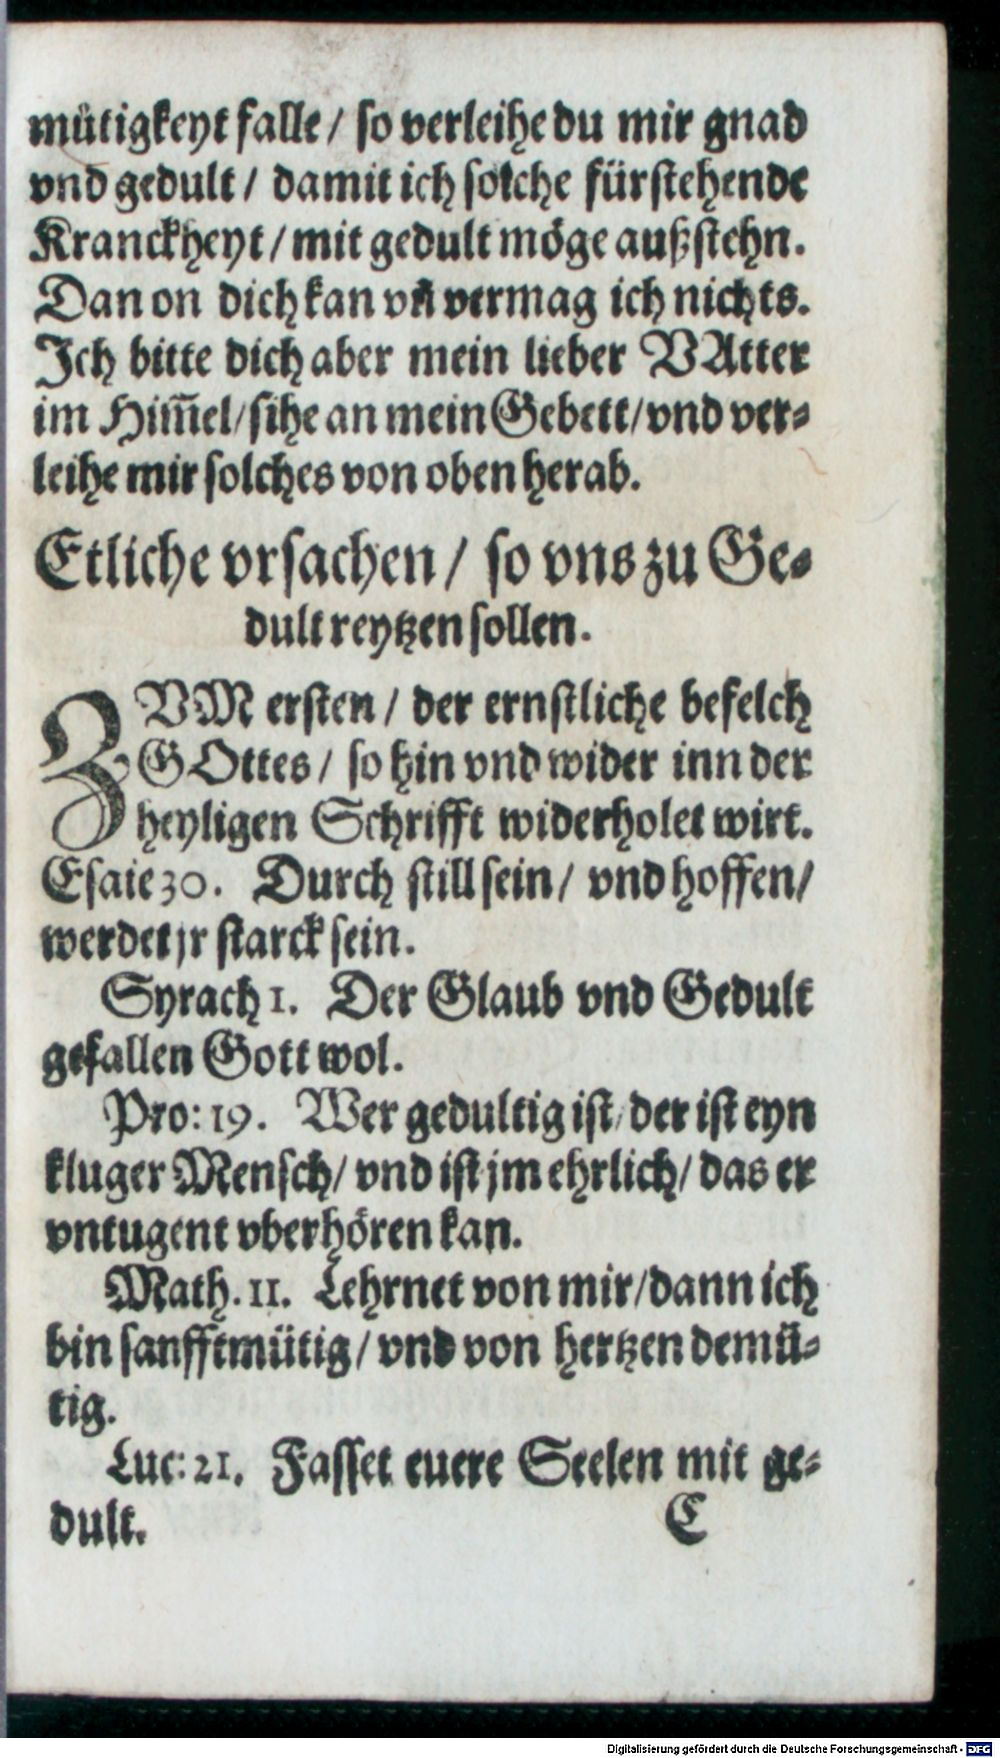 mütigkeyt falle / so verleihe du mir gnad
vnd gedult / damit ich solche fürstehende
Kranckheyt / mit gedult möge außstehn.
Dan on dich kan vñ vermag ich nichts.
Ich bitte dich aber mein lieber VAtter
im Him̃el / sihe an mein Gebett / vnd ver-
leihe mir solches von oben herab.
Etliche vrsachen / so vns zu Ge-
dult reytzen sollen.
ZVM ersten / der ernstliche befelch
GOttes / so hin vnd wider inn der
heyligen Schrifft widerholet wirt.
Esaie 30. Durch still sein / vnd hoffen /
werdet jr starck sein.
Syrach 1. Der Glaub vnd Gedult
gefallen Gott wol.
Pro: 19. Wer gedultig ist / der ist eyn
kluger Mensch / vnd ist jm ehrlich / das er
vntugent vberhören kan.
Math. 11. Lehrnet von mir / dann ich
bin sanfftmütig / vnd von hertzen demü-
tig.
Luc: 21. Fasset euere Seelen mit ge-
dult. C
Digitalisierung gefördert durch die Deutsche Forschungsgemeinschaft - DFG